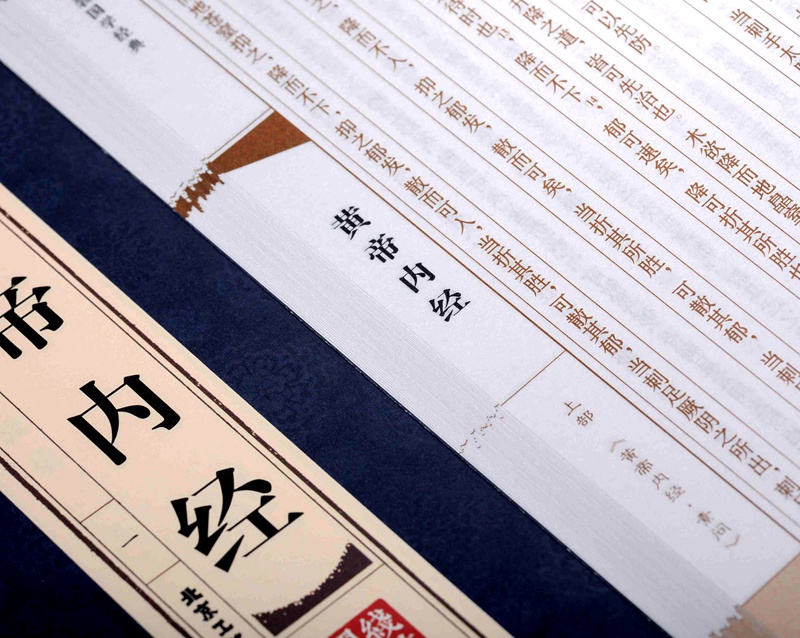 当刺手太
可以先防
升降之道，皆可先治也。木欲降而地皛
降而不下，郁可速矣，降可折其所胜也
降而不入，抑之郁发，散而可矣，当折其所胜，可散其郁，当刺
地苍窒抑之，降而不下，抑之郁发，散而可入，当折其胜，可散其郁，当刺足厥阴之所出，刺
国学经典
黄帝内经
上部
《黄帝内经·素问》
帝内经
一
北京工
线